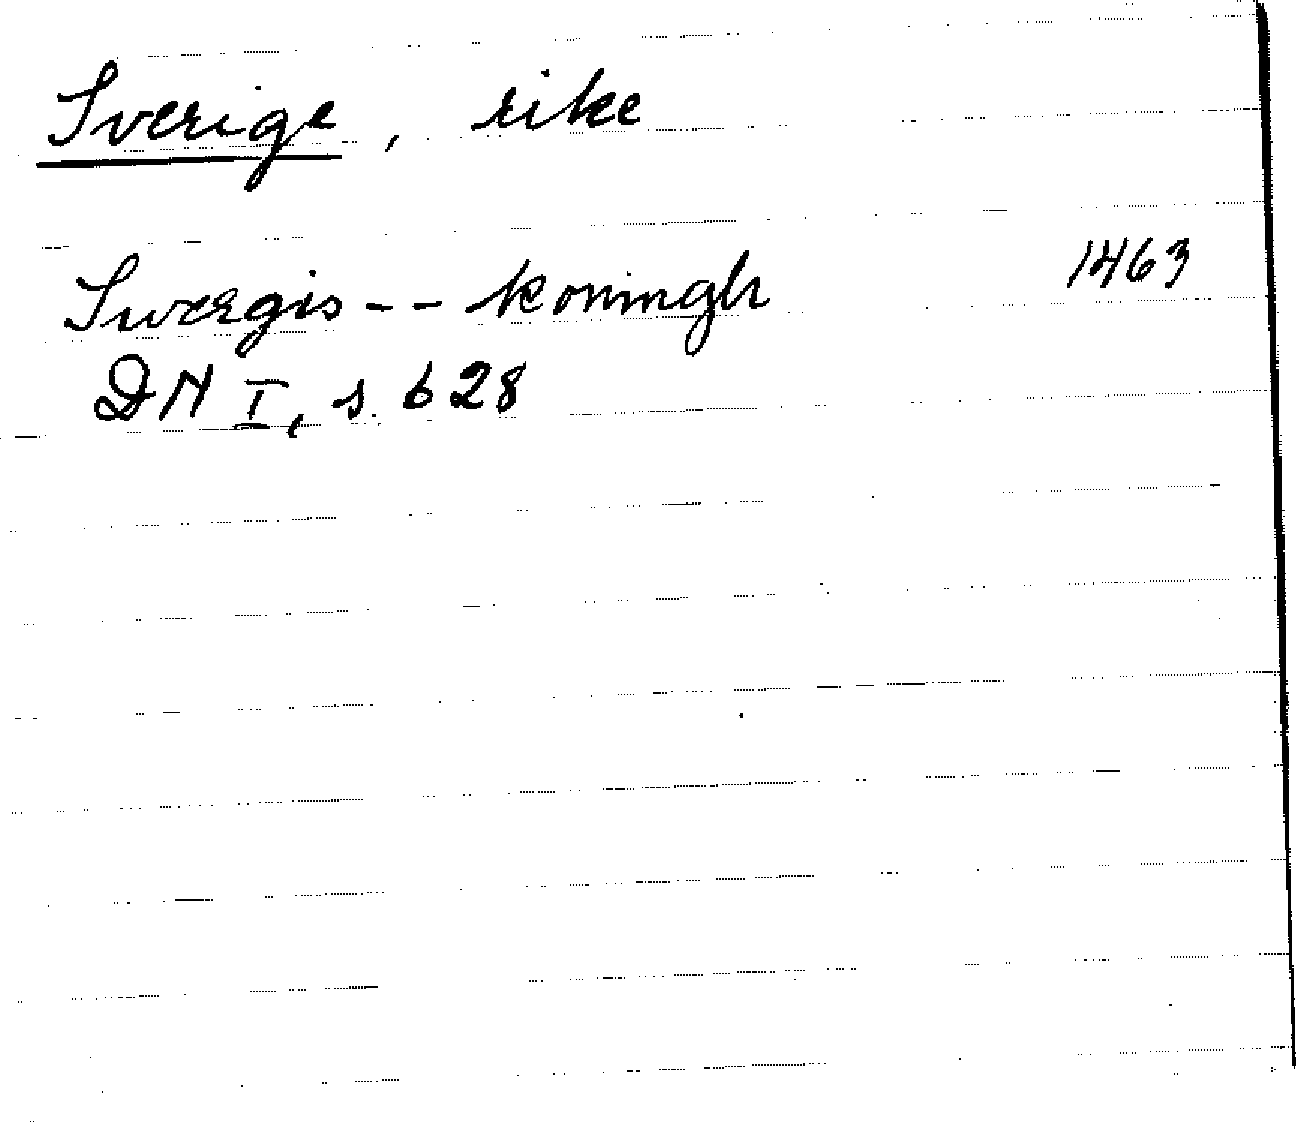 Sverige, rike
Swergis -- koningh 1463
DN I, s. 628